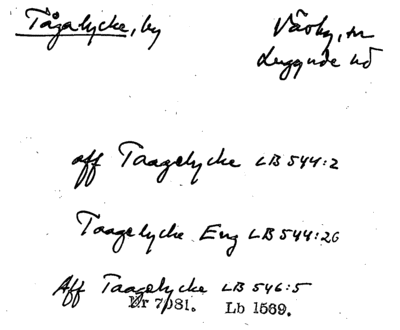 Tågalycke, by
Väsby, sn
Luggude hd
aff Taagelycke LB 544:2
Taagelycke Eng LB 544:26
Aff Taagelycke LB 546:5
Nr 7981. Lb 1569.